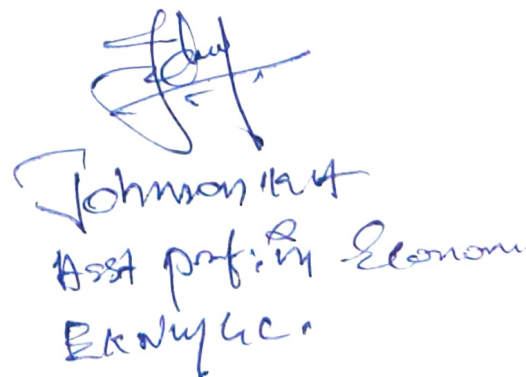 Johnson K A
Asst prof: in Econom
EKNMGC.